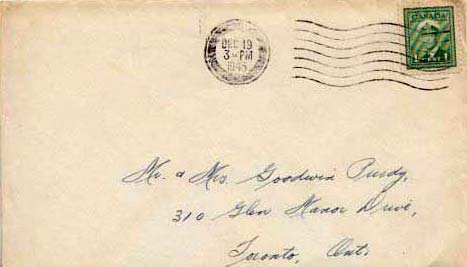 DEC 19
3-PM
1945
CANADA
1 1
Mr. & Mrs. Goodwin Purdy,
310 Glen Manor Drive,
Toronto, Ont.